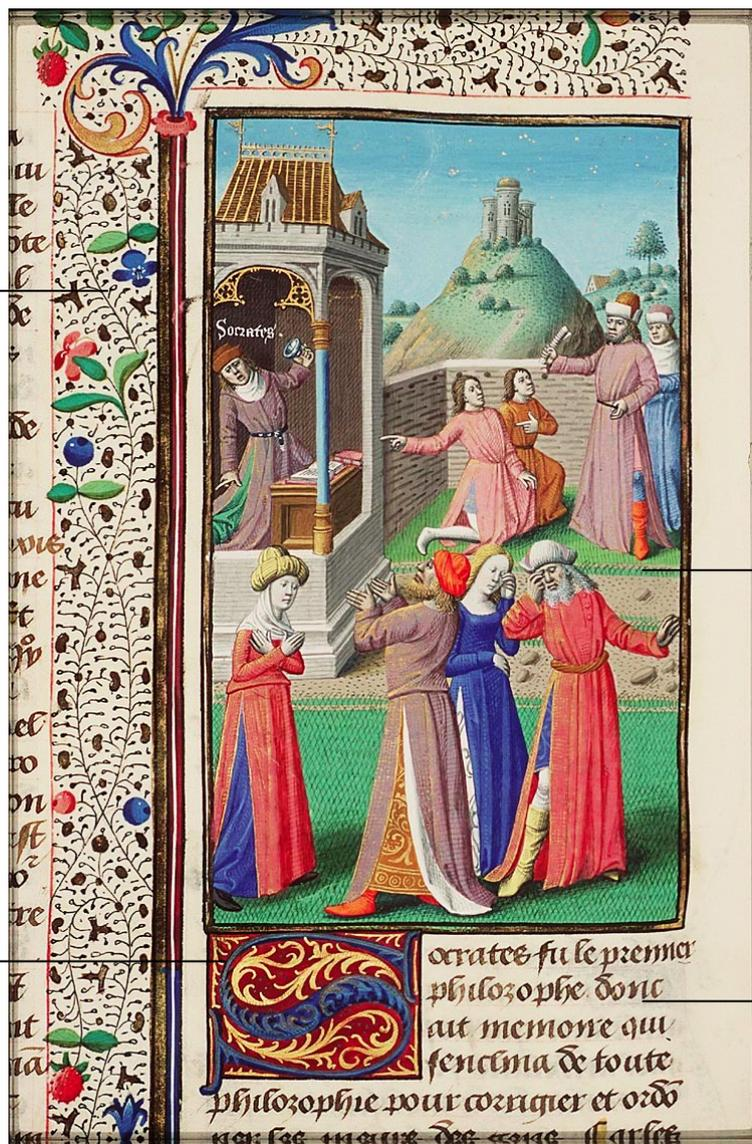 Socrates
Socrates fu le premier
philozophe dont
ait memoire qui
senclina de toute
philozophie pour corrigier et ordo
ner les meurs des gens. Car les